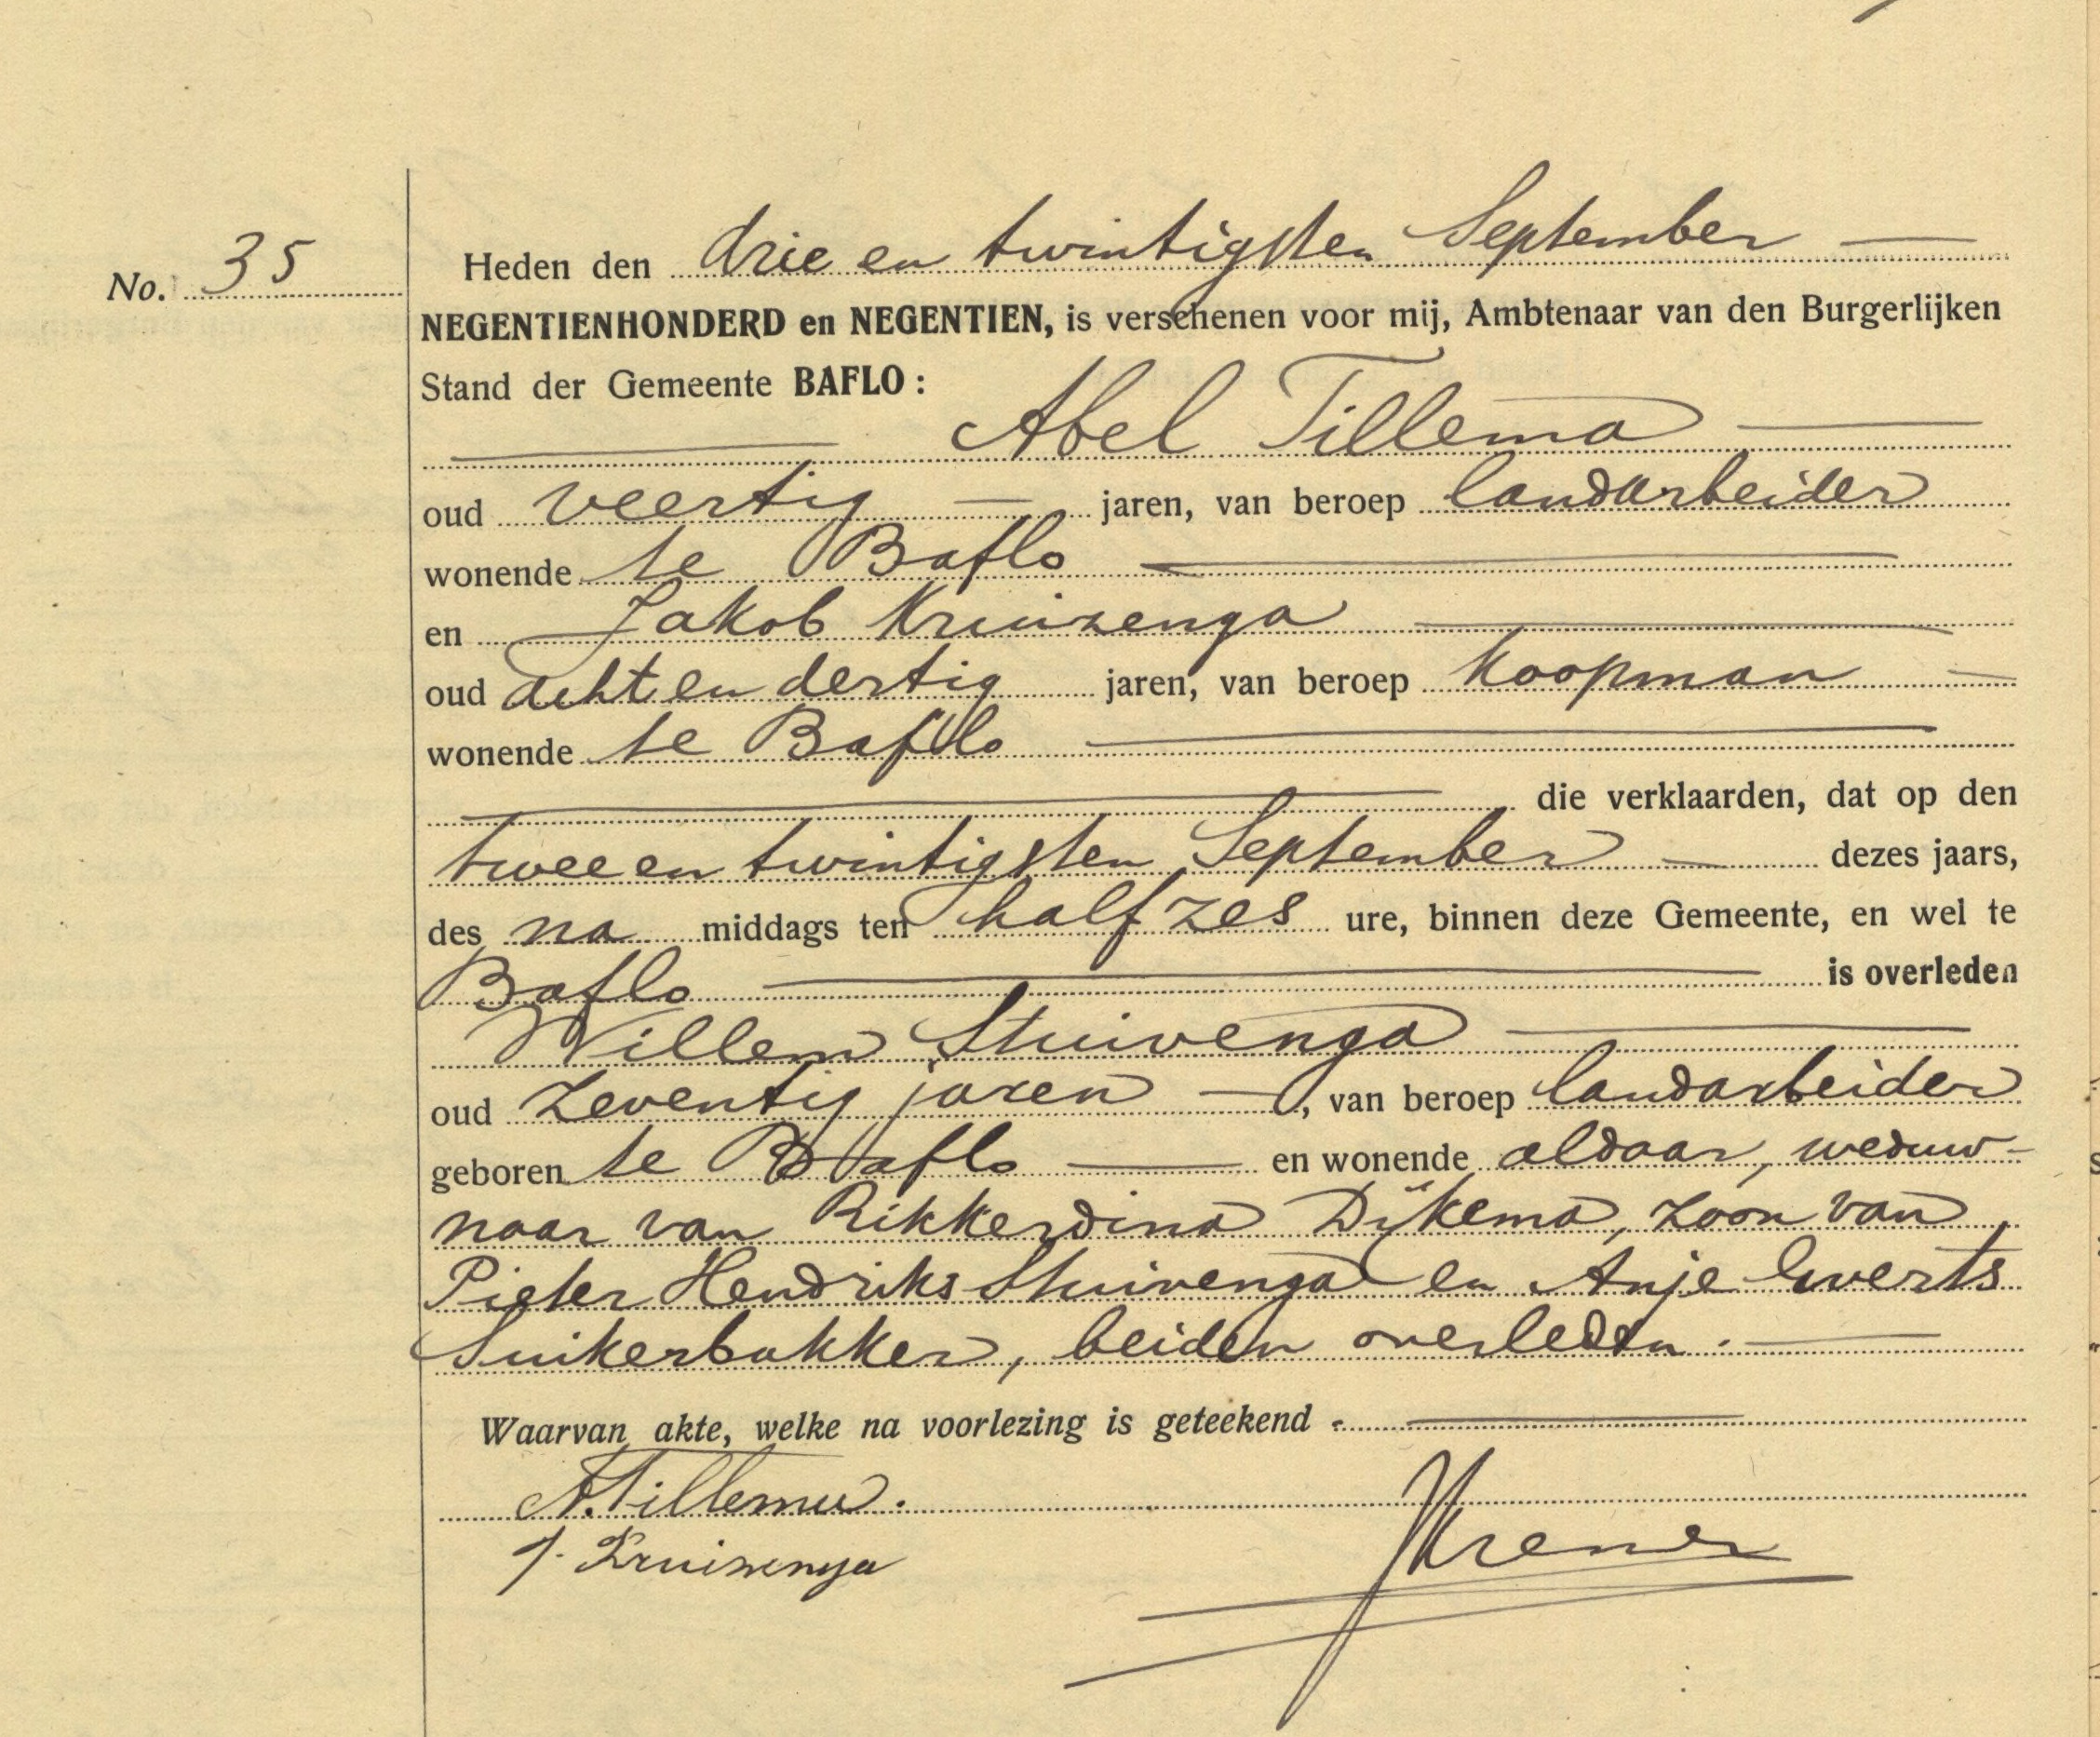 No. 35
Heden den drie en twintigsten September
NEGENTIENHONDERD en NEGENTIEN, is verschenen voor mij, Ambtenaar van den Burgerlijken
Stand der Gemeente BAFLO:
Abel Tillema
oud veertig jaren, van beroep landarbeider
wonende te Baflo
en Jakob Kruizenga
oud acht en dertig jaren, van beroep koopman
wonende te Baflo
die verklaarden, dat op den
twee en twintigsten September dezes jaars,
des na middags ten half zes ure, binnen deze Gemeente, en wel te
Baflo is overleden
Willem Stuivenga
oud zeventig jaren, van beroep landarbeider
geboren te Baflo en wonende aldaar, weduw-
naar van Rikkerdina Dijkema, zoon van
Pieter Hendriks Stuivenga en Anje Everts
Suikerbakker, beiden overleden.
Waarvan akte, welke na voorlezing is geteekend.
A. Tillema.
J. Kruizenga
JKremer